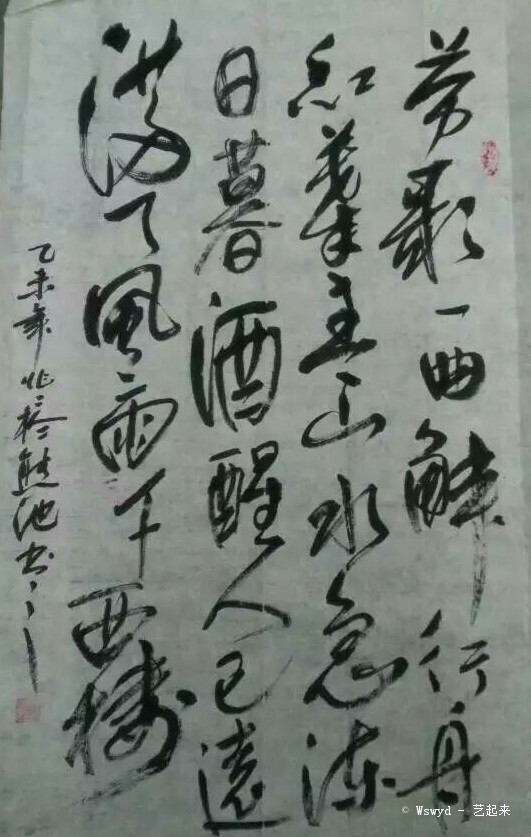 劳歌一曲解行舟
红葉青山水急流
日暮酒醒人已遠
满天風雨下西樓
乙未年池书
© Wswyd - 艺起来